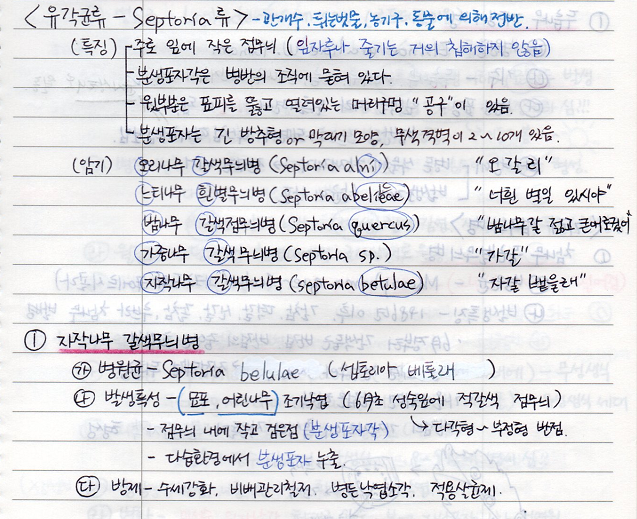 <유각균류 - Septoria류> - 관개수, 튀는빗물, 농기구, 동물에 의해 전반.
(특징) - 주로 잎에 작은 점무늬 (잎자루나 줄기는 거의 침해하지 않음)
- 분생포자각은 병반의 조직에 묻혀 있다.
- 윗부분은 표피를 뚫고 열려있는 머리구멍 "공구"이 있음.
- 분생포자는 긴 방추형 or 막대기 모양, 무색 격벽이 2~10개 있음.
(암기) 오리나무 갈색무늬병 (Septoria alni) "오갈리"
느티나무 흰별무늬병 (Septoria abeliceae) "너흰 별일 있시야"
밤나무 갈색점무늬병 (Septoria quercus) "밤나무갈 점고"
가중나무 갈색무늬병 (Septoria sp.) "가갈"
자작나무 갈색무늬병 (septoria betulae) "자갈 배울래"
① 자작나무 갈색무늬병
㉮ 병원균 - Septoria belulae (셉토리아 베툴래)
㉯ 발생특성 - 묘포, 어린나무 조기낙엽 (6月초 성숙잎에 적갈색 점무늬)
- 점무늬 내에 작고 검은점 (분생포자각) → 다각형~부정형 병반.
- 다습환경에서 분생포자 누출.
㉰ 방제 - 수세강화, 비배관리철저, 병든낙엽소각, 적용살균제.